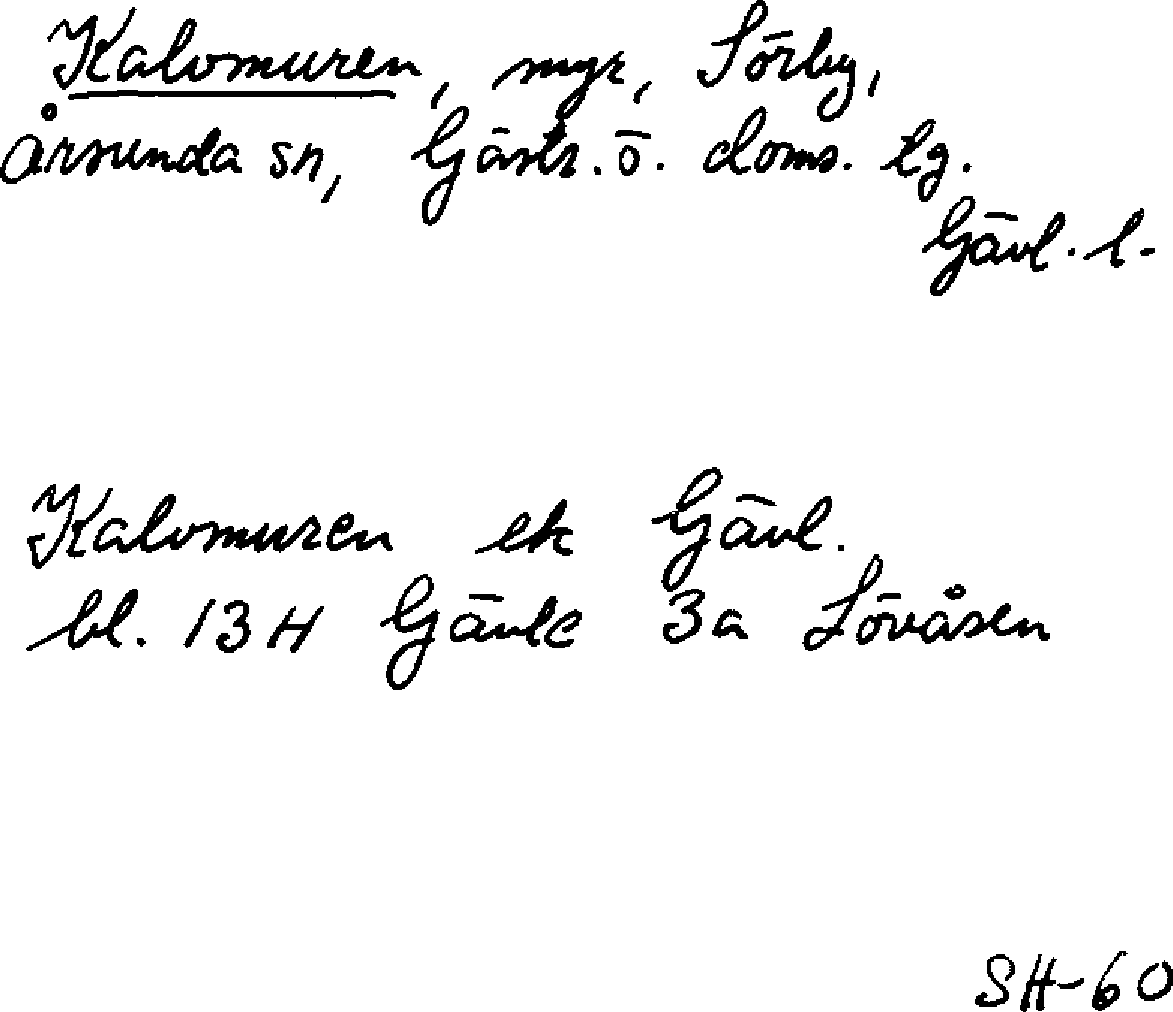 Kalvmuren, myr, Sörby,
Årsunda sn, Gästr. ö. doms. tg.
Gävl. l.
Kalvmuren ek Gävl.
bl. 13H Gävle 3a Lövåsen
SH-60